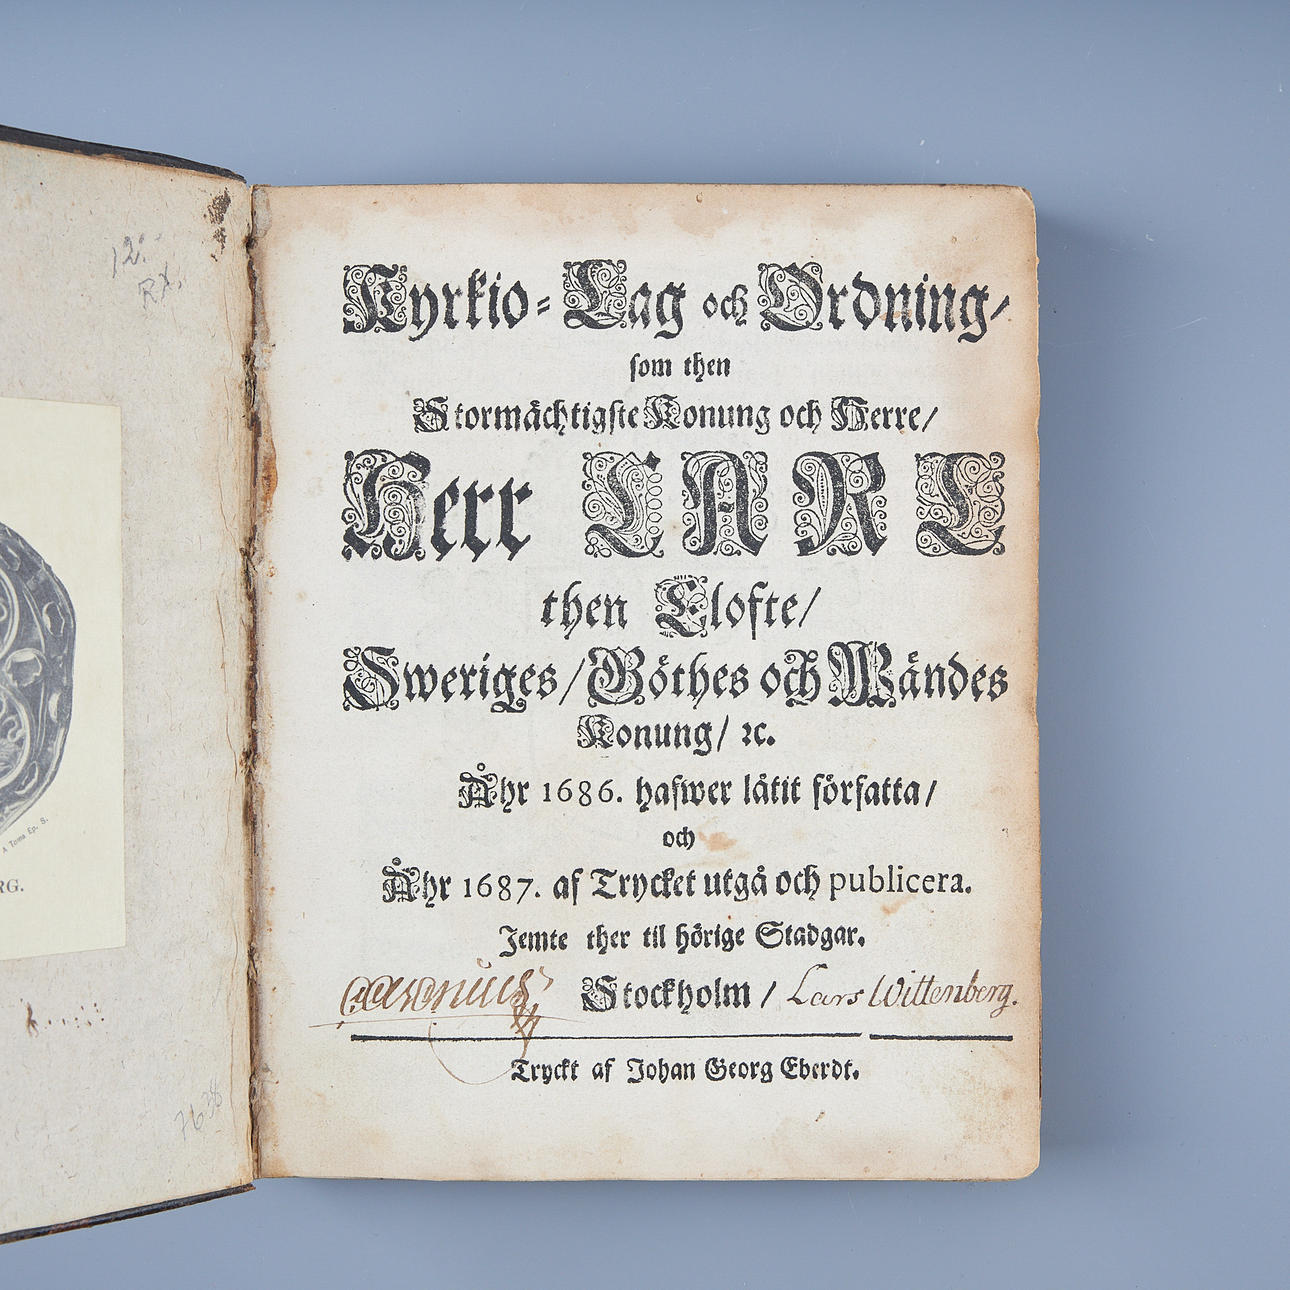 12.
RX.
A Toma Ep. S.
RG.
7638
Kyrkio-Lag och Ordning/
som then
Stormächtigste Konung och Herre/
Herr CARL
then Elofte/
Sweriges/ Göthes och Wändes
Konung/ ꝛc.
Åhr 1686. hafwer låtit författa/
och
Åhr 1687. af Trycket utgå och publicera.
Jemte ther til hörige Stadgar.
Stockholm / Lars Wittenberg.
Tryckt af Johan Georg Eberdt.